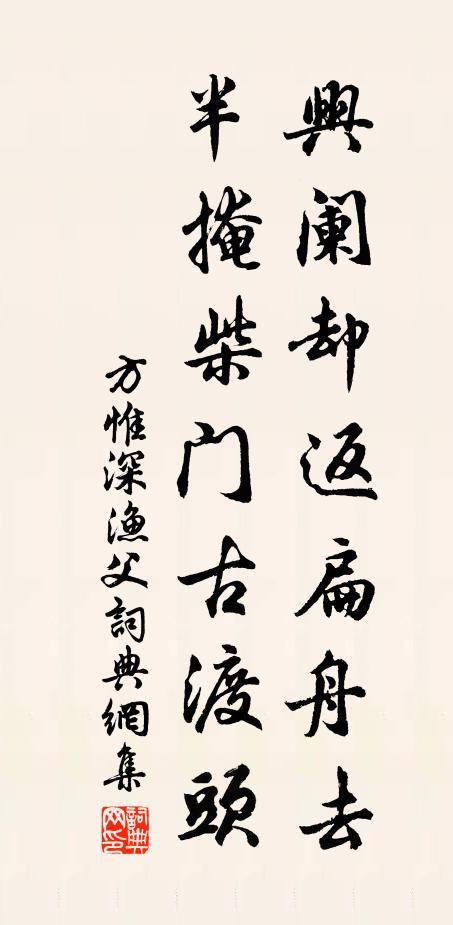 興阑却返扁舟去
半掩柴门古渡頭
方惟深漁父詞典網集
詞典網印